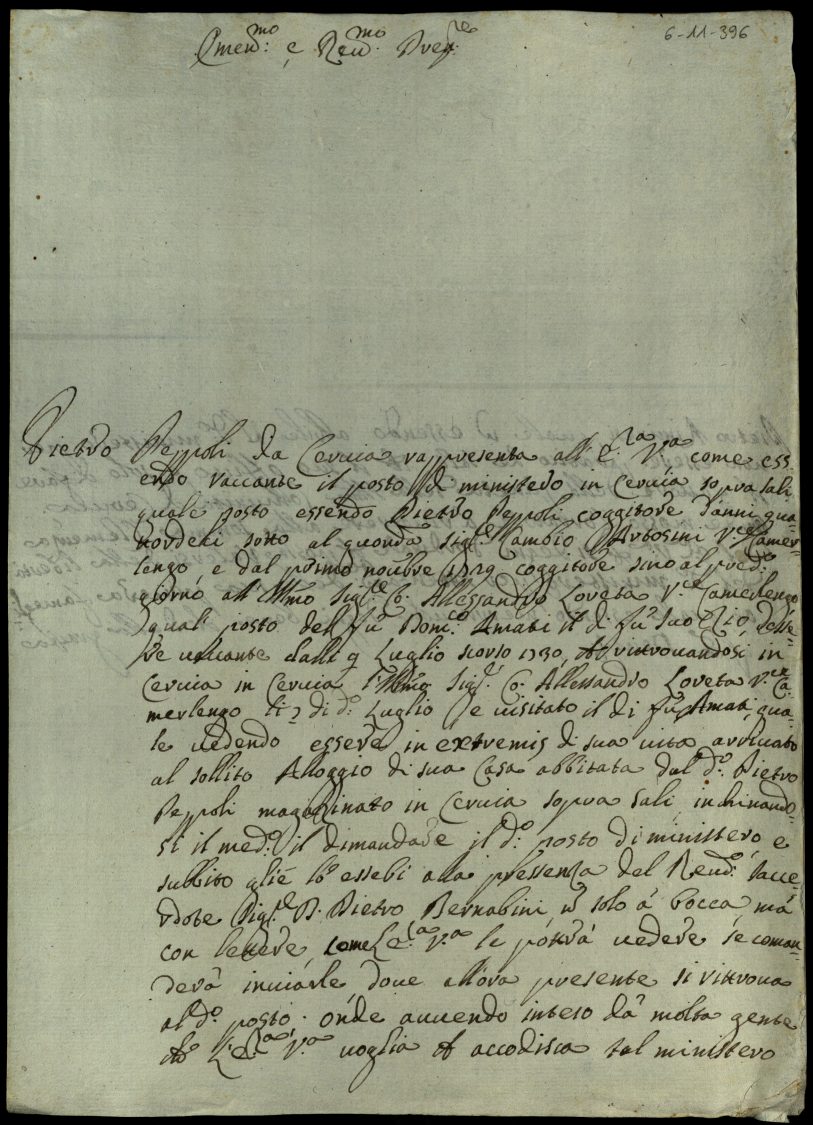 6-11-396
Emend.mo e Reu.mo Preg.re
Pietro Peppoli da Ceruia rappresenta all' E.za V.a come ess-
endo vaccante il posto di ministero in ceruia sopra sali
quale posto essendo Pietro Peppoli coggitore d'anni qua-
tordeci sotto al quonda Sig.re Cambio Arbosini V.ce Camer-
lengo, e dal primo noubre 1729 coggitore sino al pred.o
giorno all' Illmo Sig.re Co. Allessandro Loveta V.ce Camerlengo
qual' posto del fu Dom.co Amati il di fu suo Zio, d'esse-
re uacante dalli 9 Luglio scorso 1730, ritrouandosi in
Ceruia in Ceruia l'Illmo Sig.r Co. Allessandro Loveta V.ce Ca-
merlengo li 7 di d.o Luglio e uisitato il di fu Amati, qua-
le uedendo essere in extremis di sua uita arriuato
al sollito Alloggio di sua Casa abbitata dal d.o Pietro
Peppoli magazinato in Ceruia sopra sali, inchinando-
si il med.o il dimandare il d.o posto di ministero, e
subbito gliè lo essebi alla pressenza del Reud.o sacce-
rdote Sig.re D. Pietro Bernabini, solo á bocca, má
con lettere, come L'e.za V.a le potrá uedere se coman-
derá inuiarle, doue allora presente si ritroua
al d.o posto. onde auuendo inteso dá molta gente
che L'e.za V.a uoglia accodisca tal ministero